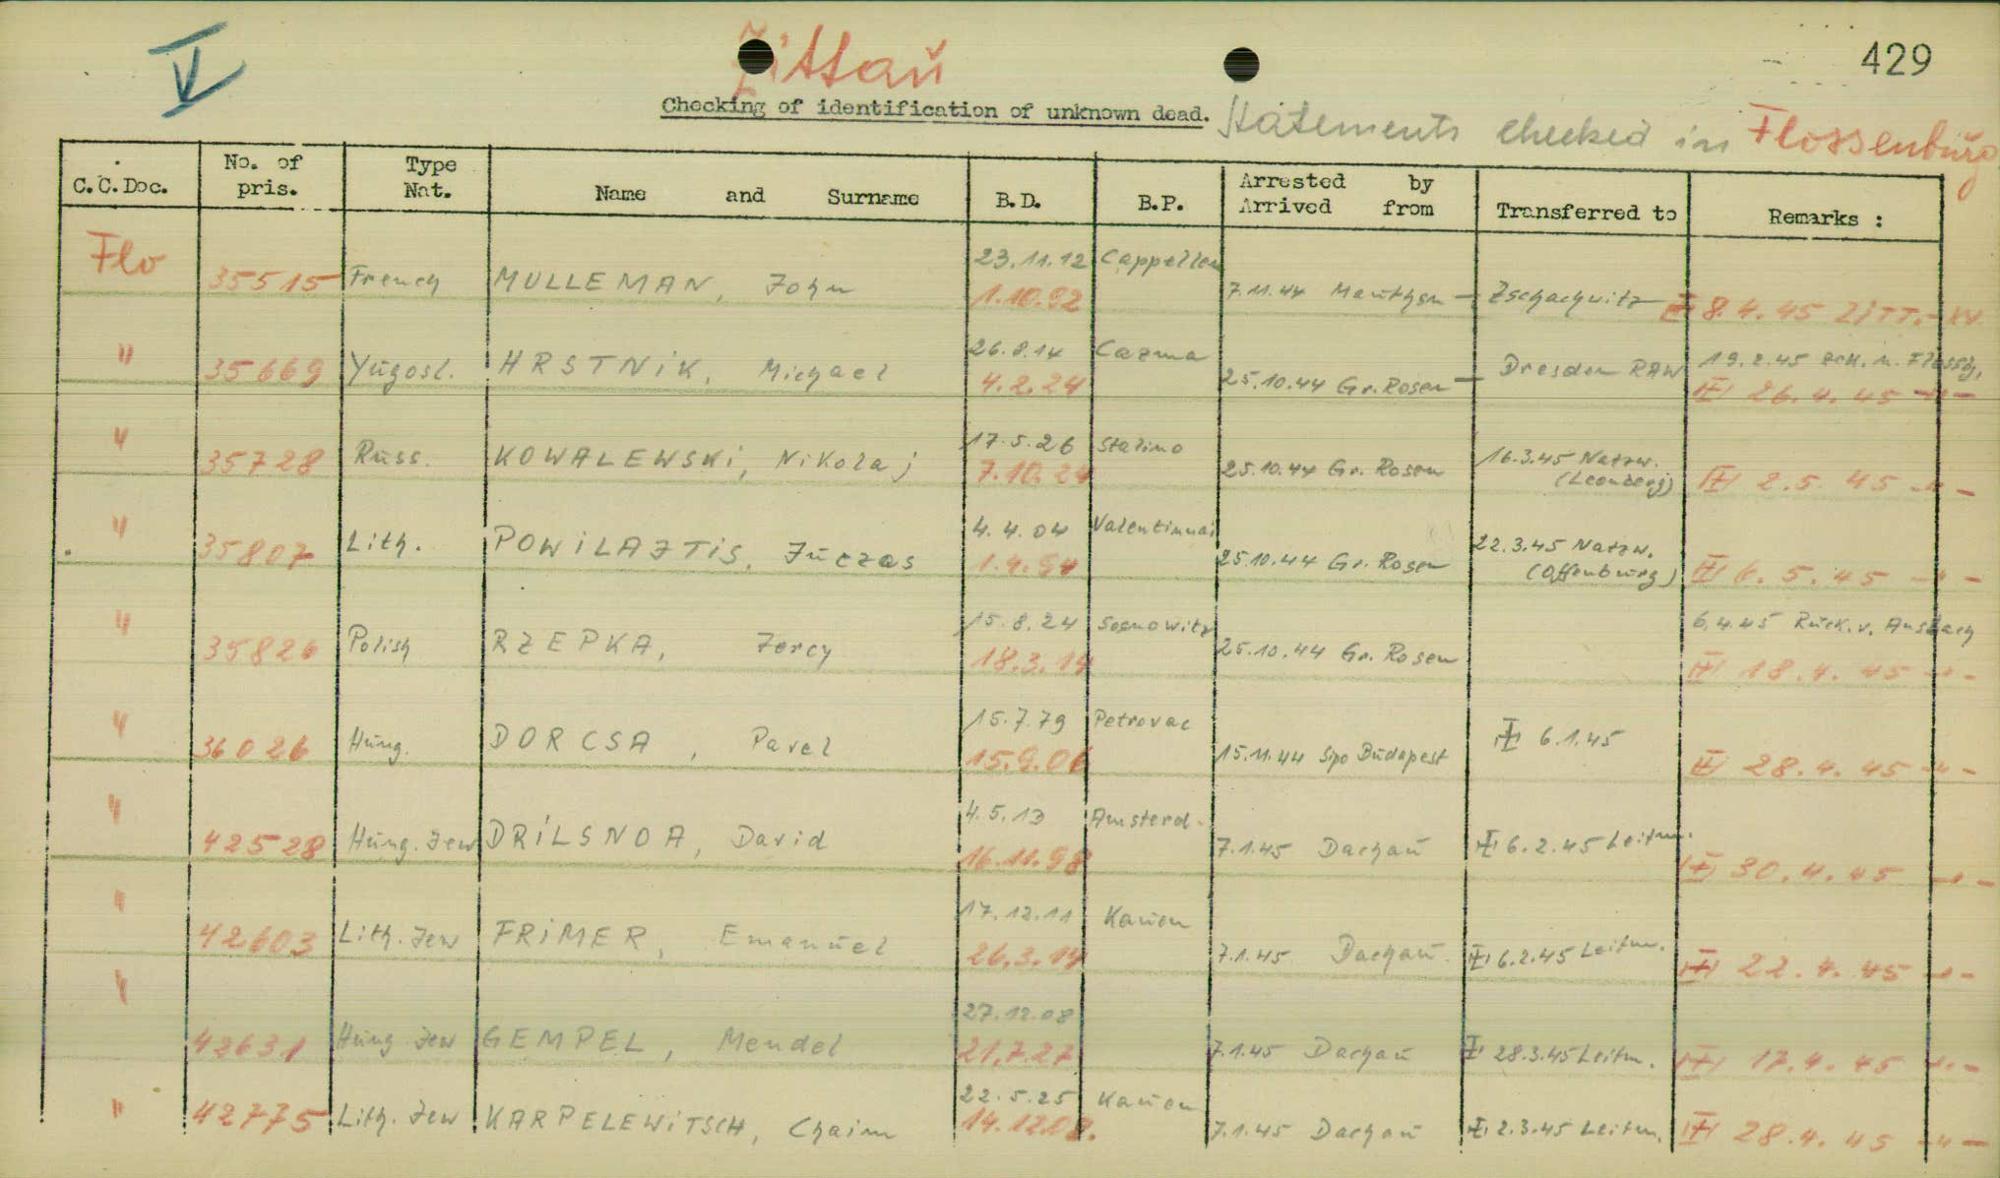 V
Zittaŭ
429
Checking of identification of unknown dead. Statements checked in Flossenbürg
C.C.Doc. No. of pris. Type Nat. Name and Surname B.D. B.P. Arrested by Arrived from Transferred to Remarks :
Flo 35515 French MULLEMAN, John 23.11.12 Cappellen 7.11.44 Mauthsn — Zschachwitz 8.4.45 ZITT.
1.10.92
" 35669 Yugosl. HRSTNIK, Michael 26.8.14 Cazma 25.10.44 Gr. Rosen — Dresden RAW 19.2.45 zck. n. Flossbg.
4.2.24 26.4.45 -"-
" 35728 Russ. KOWALEWSKI, Nikolaj 17.5.26 Stalino 25.10.44 Gr. Rosen 16.3.45 Natzw. (Leonberg)
7.10.24 2.5.45 -"-
" 35807 Lith. POWILAJTIS, Juczas 4.4.04 Valentinnai 25.10.44 Gr. Rosen 22.3.45 Natzw. (Offenburg)
6.5.45 -"-
" 35826 Polish RZEPKA, Jercy 15.8.24 Sosnowitz 25.10.44 Gr. Rosen 6.4.45 Rück. v. Ansbach
18.3.14 18.4.45 -"-
" 36026 Hung. DORCSA, Pavel 15.7.79 Petrovac 15.11.44 Sipo Budapest 6.1.45
15.9.06 28.4.45 -"-
" 42528 Hung. Jew DRILSNOA, David 4.5.13 Amsterd. 7.1.45 Dachau 6.2.45 Leitm.
16.11.98 30.4.45 -"-
" 42603 Lith. Jew FRIMER, Emanuel 17.12.11 Kauen 7.1.45 Dachau 6.2.45 Leitm.
26.3.14 22.4.45 -"-
" 42631 Hung Jew GEMPEL, Mendel 27.12.08 7.1.45 Dachau 28.3.45 Leitm.
21.7.27 17.4.45 -"-
" 42775 Lith. Jew KARPELEWITSCH, Chaim 22.5.25 Kauen 7.1.45 Dachau 2.3.45 Leitm.
14.12.02. 28.4.45 -"-